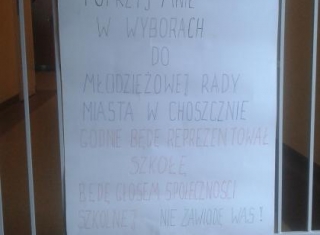 POPRZYJ MNIE
W WYBORACH
DO
MŁODZIEŻOWEJ RADY
MIASTA W CHOSZCZNIE
GODNIE BĘDĘ REPREZENTOWAŁ
SZKOŁĘ
BĘDĘ GŁOSEM SPOŁECZNOŚCI
SZKOLNEJ NIE ZAWIODĘ WAS!